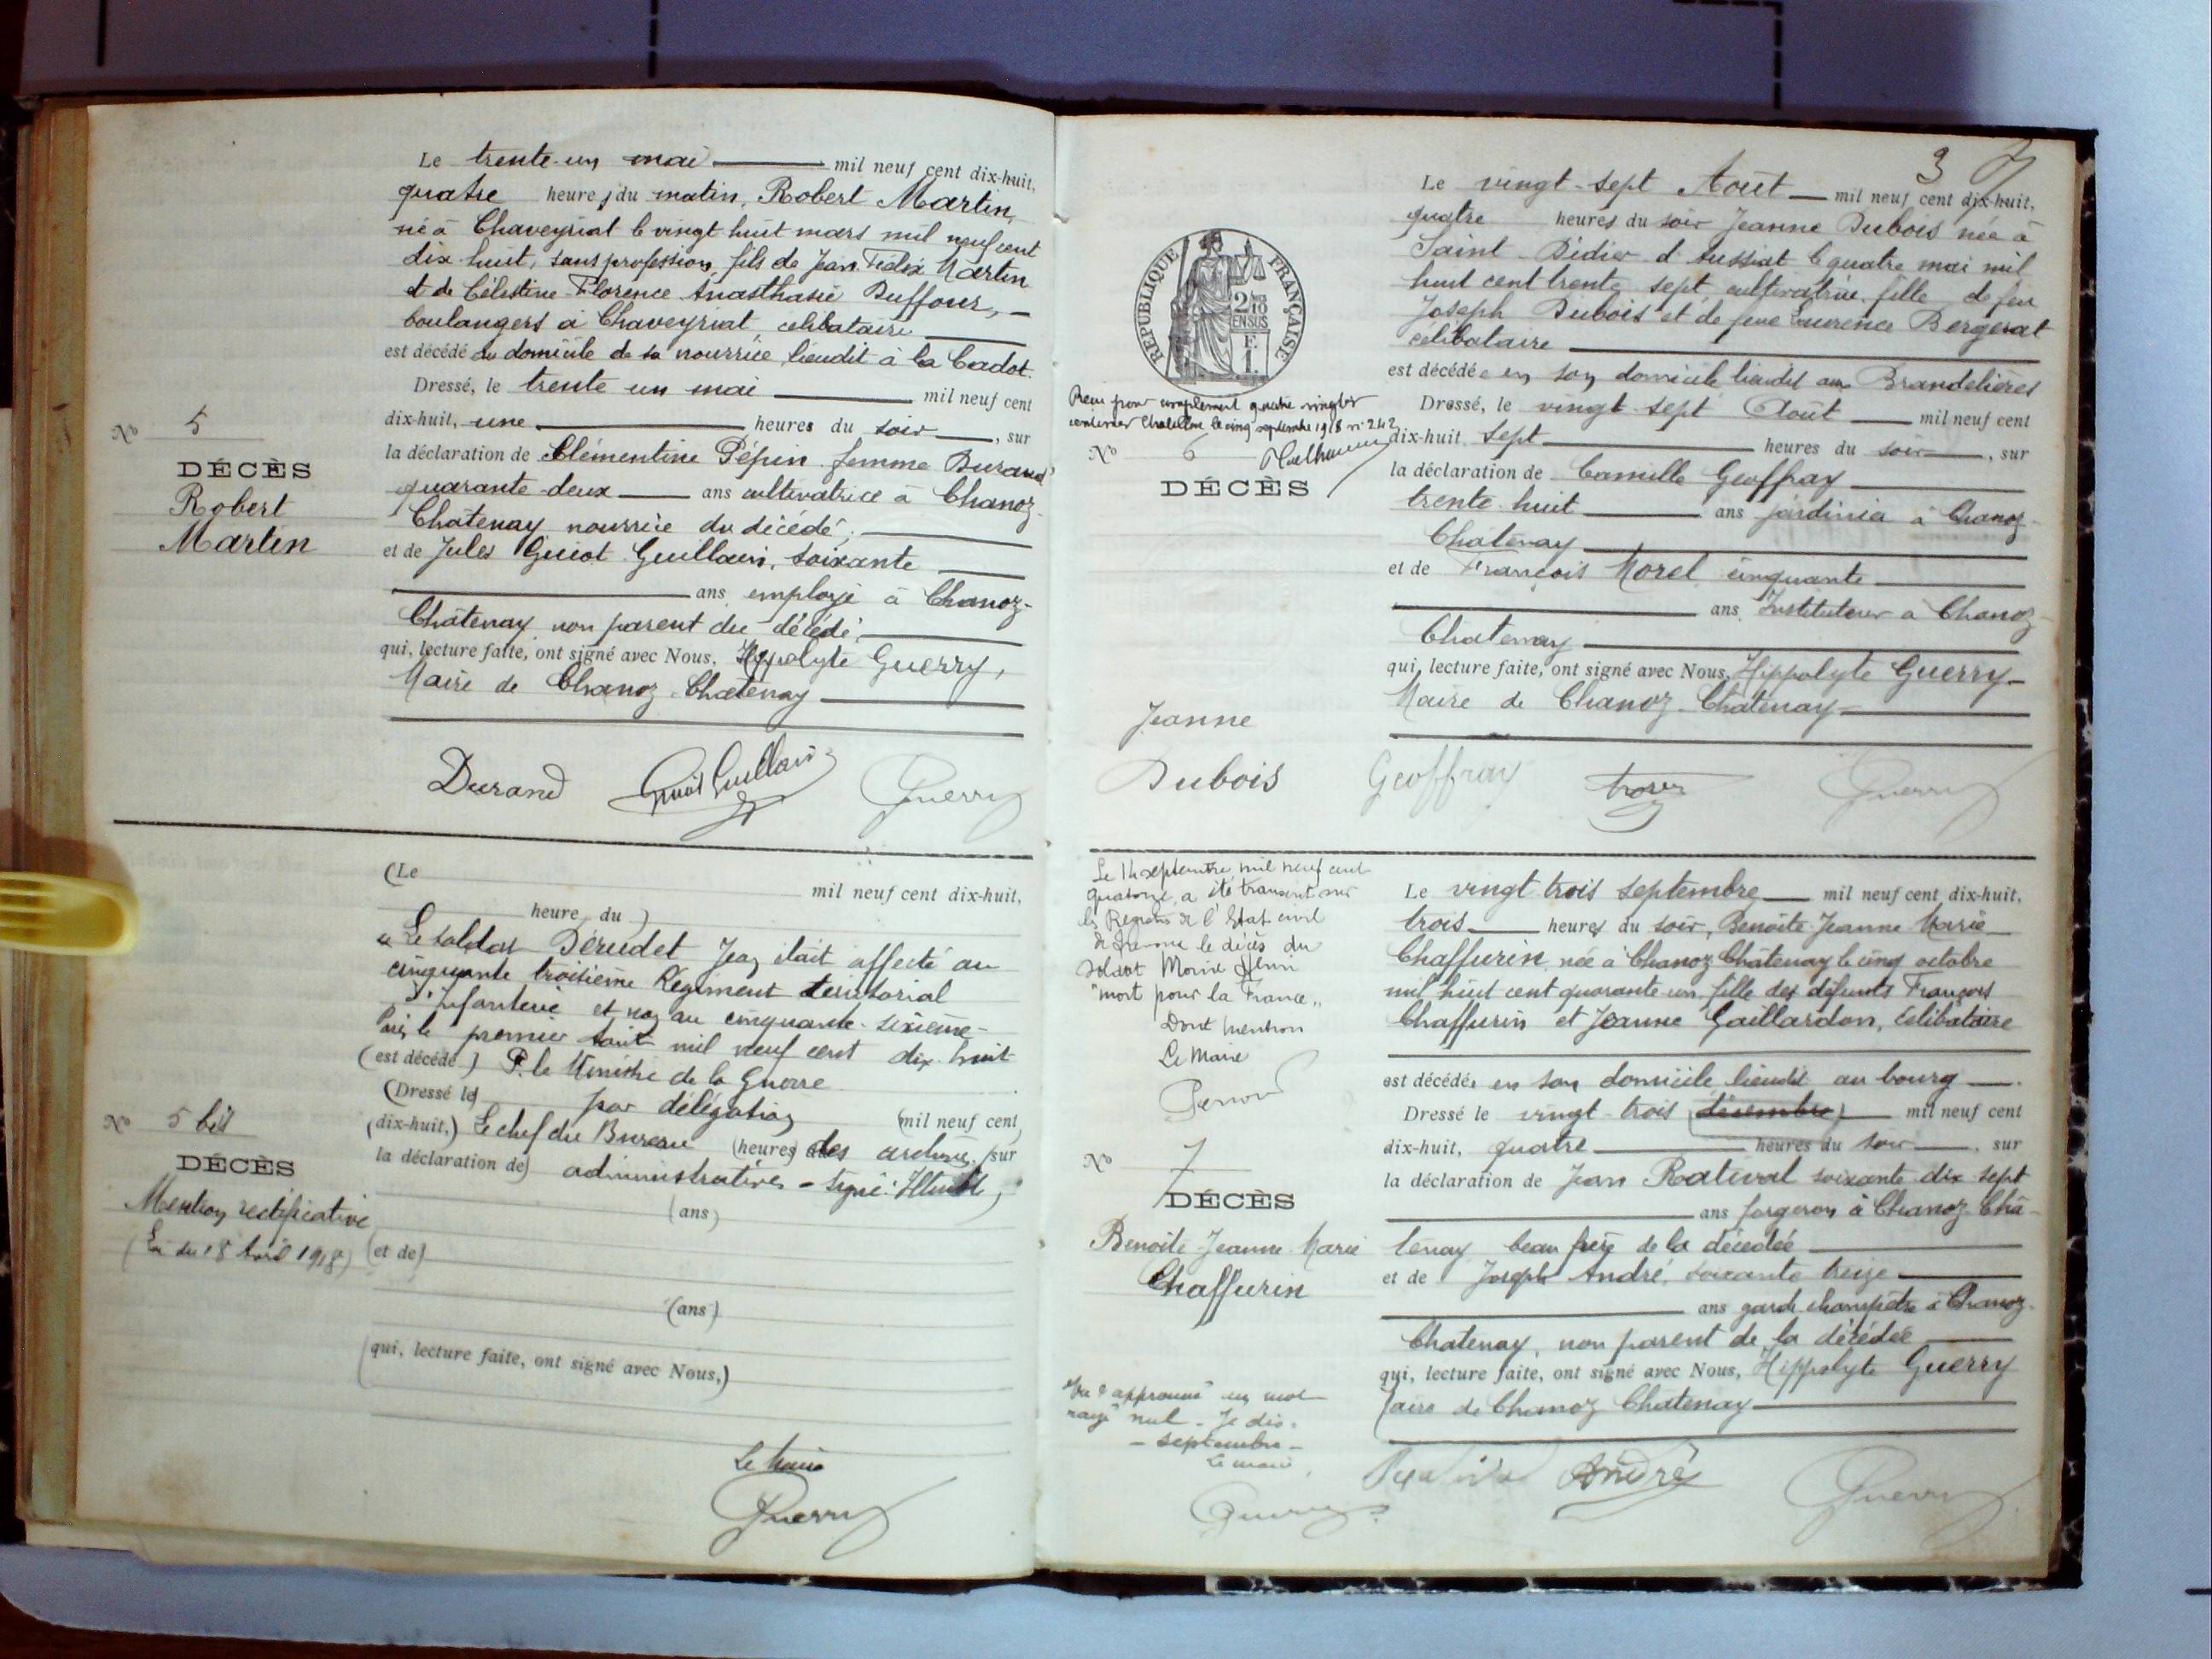 Le trente-un mai mil neuf cent dix-huit,
quatre heures du matin, Robert Martin,
né à Chaveyriat le vingt huit mars mil neuf cent
dix huit, sans profession, fils de Jean Félix Martin
et de Célestine Florence Anasthasie Duffour,
boulangers à Chaveyriat, célibataire
est décédé au domicile de sa nourrice lieudit à la Cadot.
Dressé, le trente un mai mil neuf cent
dix-huit, une heures du soir, sur
la déclaration de Clémentine Pépin femme Durand
quarante-deux ans cultivatrice à Chanoz-
Châtenay nourrice du décédé;
et de Jules Guiot Guillain, soixante
ans employé à Chanoz-
Châtenay non parent du décédé,
qui, lecture faite, ont signé avec Nous, Hippolyte Guerry,
Maire de Chanoz-Châtenay
Nº 5
DÉCÈS
Robert
Martin
Durand Guiot Guillain Guerry
(Le mil neuf cent dix-huit,
heure du)
"Le soldat Dérudet Jean était affecté au
cinquante troisième Régiment territorial
d'Infanterie et non au cinquante-sixième-
Paris, le premier Août mil neuf cent dix huit
(est décédé) P. le Ministre de la Guerre
(Dressé le) par délégation (mil neuf cent
(dix-huit,) Le chef du Bureau (heures du) des archives (sur
la déclaration de) administratives - signé:
(ans)
(et de)
(ans)
(qui, lecture faite, ont signé avec Nous,)
Nº 5 bis
DÉCÈS
Mention rectificative
(Loi du 18 Avril 1918)
Le Maire
Guerry
3
RÉPUBLIQUE FRANÇAISE
2/10
EN SUS
F.
1.
pour complément quatre vingts
centimes Châtillon le cinq septembre 1918 nº 242
Nº 6
DÉCÈS
Jeanne
Dubois
Le vingt-sept Août mil neuf cent dix-huit,
quatre heures du soir Jeanne Dubois née à
Saint-Didier d'Aussiat le quatre mai mil
huit cent trente sept cultivatrice, fille de feu
Joseph Dubois et de feue Laurence Bergerat
célibataire
est décédée en son domicile lieudit aux Brandelières
Dressé, le vingt-sept Août mil neuf cent
dix-huit, sept heures du soir, sur
la déclaration de Camille Geoffray
trente-huit ans jardinier à Chanoz-
Châtenay
et de François Morel cinquante
ans, Instituteur à Chanoz-
Chatenay
qui, lecture faite, ont signé avec Nous, Hippolyte Guerry
Maire de Chanoz-Chatenay
Geoffray Guerry
Le 14 septembre mil neuf cent
quatorze, a été transcrit sur
les Registres de l'Etat civil
le décès du
soldat
"mort pour la France"
Dont mention
Le Maire
Nº 7
DÉCÈS
Benoite Jeanne Marie
Chaffurin
Le vingt trois septembre mil neuf cent dix-huit,
trois heures du soir, Benoîte Jeanne Marie
Chaffurin née à Chanoz-Châtenay le cinq octobre
mil huit cent quarante un, fille des défunts François
Chaffurin et Jeanne Gaillardon, Célibataire
est décédée en son domicile lieudit au bourg
Dressé le vingt-trois (décembre) mil neuf cent
dix-huit, quatre heures du soir, sur
la déclaration de Jean soixante dix-sept
ans forgeron à Chanoz Châ-
tenay beau frère de la décédée
et de Joseph André, soixante treize
ans garde champêtre à Chanoz-
Chatenay, non parent de la décédée
qui, lecture faite, ont signé avec Nous, Hippolyte Guerry
Maire de Chanoz Chatenay
"Vu & approuvé" un mot
rayé nul - Je dis:
- septembre -
Le maire
Guerry
André Guerry